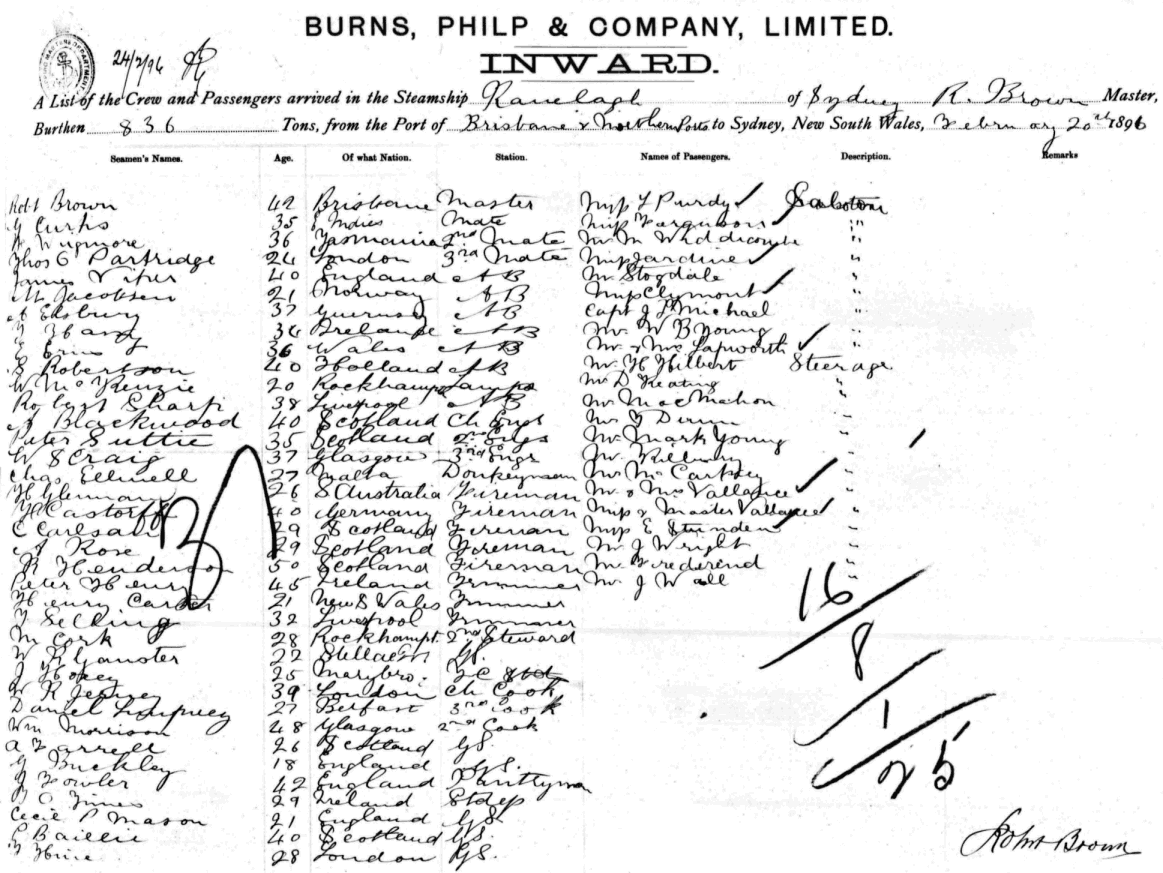 BURNS, PHILP & COMPANY, LIMITED.
INWARD.
24/2/96
A List of the Crew and Passengers arrived in the Steamship Ranelagh of Sydney R. Brown Master,
Burthen 836 Tons, from the Port of Brisbane & Northern Ports to Sydney, New South Wales, February 20th 1896
Seamen's Names. Age. Of what Nation. Station. Names of Passengers. Description. Remarks
Robt Brown 42 Brisbane Master Miss L Purdy Saloon
Y Curtis 35 E Indies Mate Miss Ferguson "
Wigmore 36 Tasmania 2nd Mate Mr M Whiddicombe "
Thos G Partridge 24 London 3rd Mate Miss Jardine "
James Viper 40 England AB Mr Stogdale "
M Jacobsen 21 Norway AB Miss Clymont "
Elsbury 37 Guernsey AB Capt J L Michael "
34 Ireland AB Mr W B Young "
36 Wales AB Mr & Mrs Lapworth "
S Robertson 40 Holland AB Mr H Hilbert Steerage
W McKenzie 20 Rockhampt Lamps Mr D Keating "
Sharp 38 Liverpool AB Mr MacMahon "
Blackwood 40 Scotland Ch Engr Mr "
Peter Suttie 35 Scotland 2nd Engr Mr Mark Young "
W S Craig 37 Glasgow 3rd Engr Mr "
Chas Ellwell 27 Malta Donkeyman Mr McCartney "
26 S Australia Fireman Mr & Mrs Vallance "
Castorff 40 Germany Fireman Miss & Master Vallance "
C Carlsan 29 Scotland Fireman Miss E "
Rose 29 Scotland Fireman Mr J Wright "
R Henderson 50 Scotland Fireman Mr "
Peter Henry 45 Ireland Trimmer Mr J Wall "
Henry Carter 21 New S Wales Trimmer
Selling 32 Liverpool Trimmer
M Cork 28 Rockhampt. 2nd Steward
22 GS.
25 Marybro.
W R 39 London Ch Cook
Daniel 27 Belfast 3rd Cook
Wm Morrison 48 Glasgow 2nd Cook
A Farrell 26 Scotland GS.
Buckley 18 England GS.
J Fowler 42 England Pantryman
29 Ireland Stdess
Cecil P Mason 21 England GS.
E Baillie 40 Scotland GS.
28 London GS.
16
8
1
25
Robt Brown